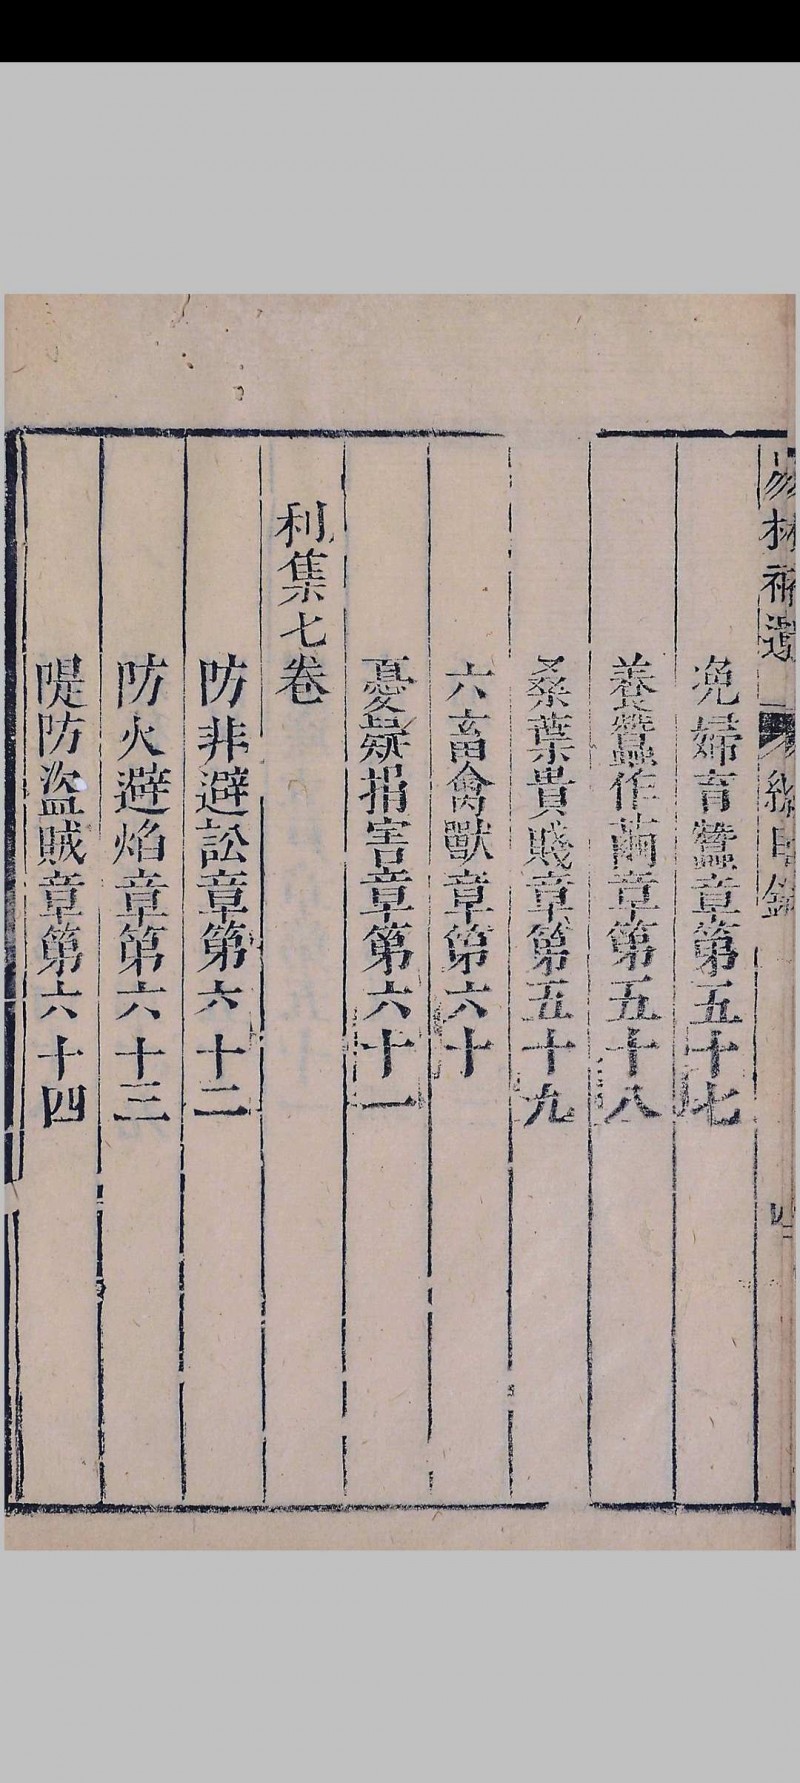 易林補遺 總目錄 四
娩婦育蠶章第五十七
養蠶作繭章第五十八
桑葉貴賤章第五十九
六畜禽獸章第六十
憂疑損害章第六十一
利集七卷
防非避訟章第六十二
防火避焰章第六十三
隄防盜賊章第六十四